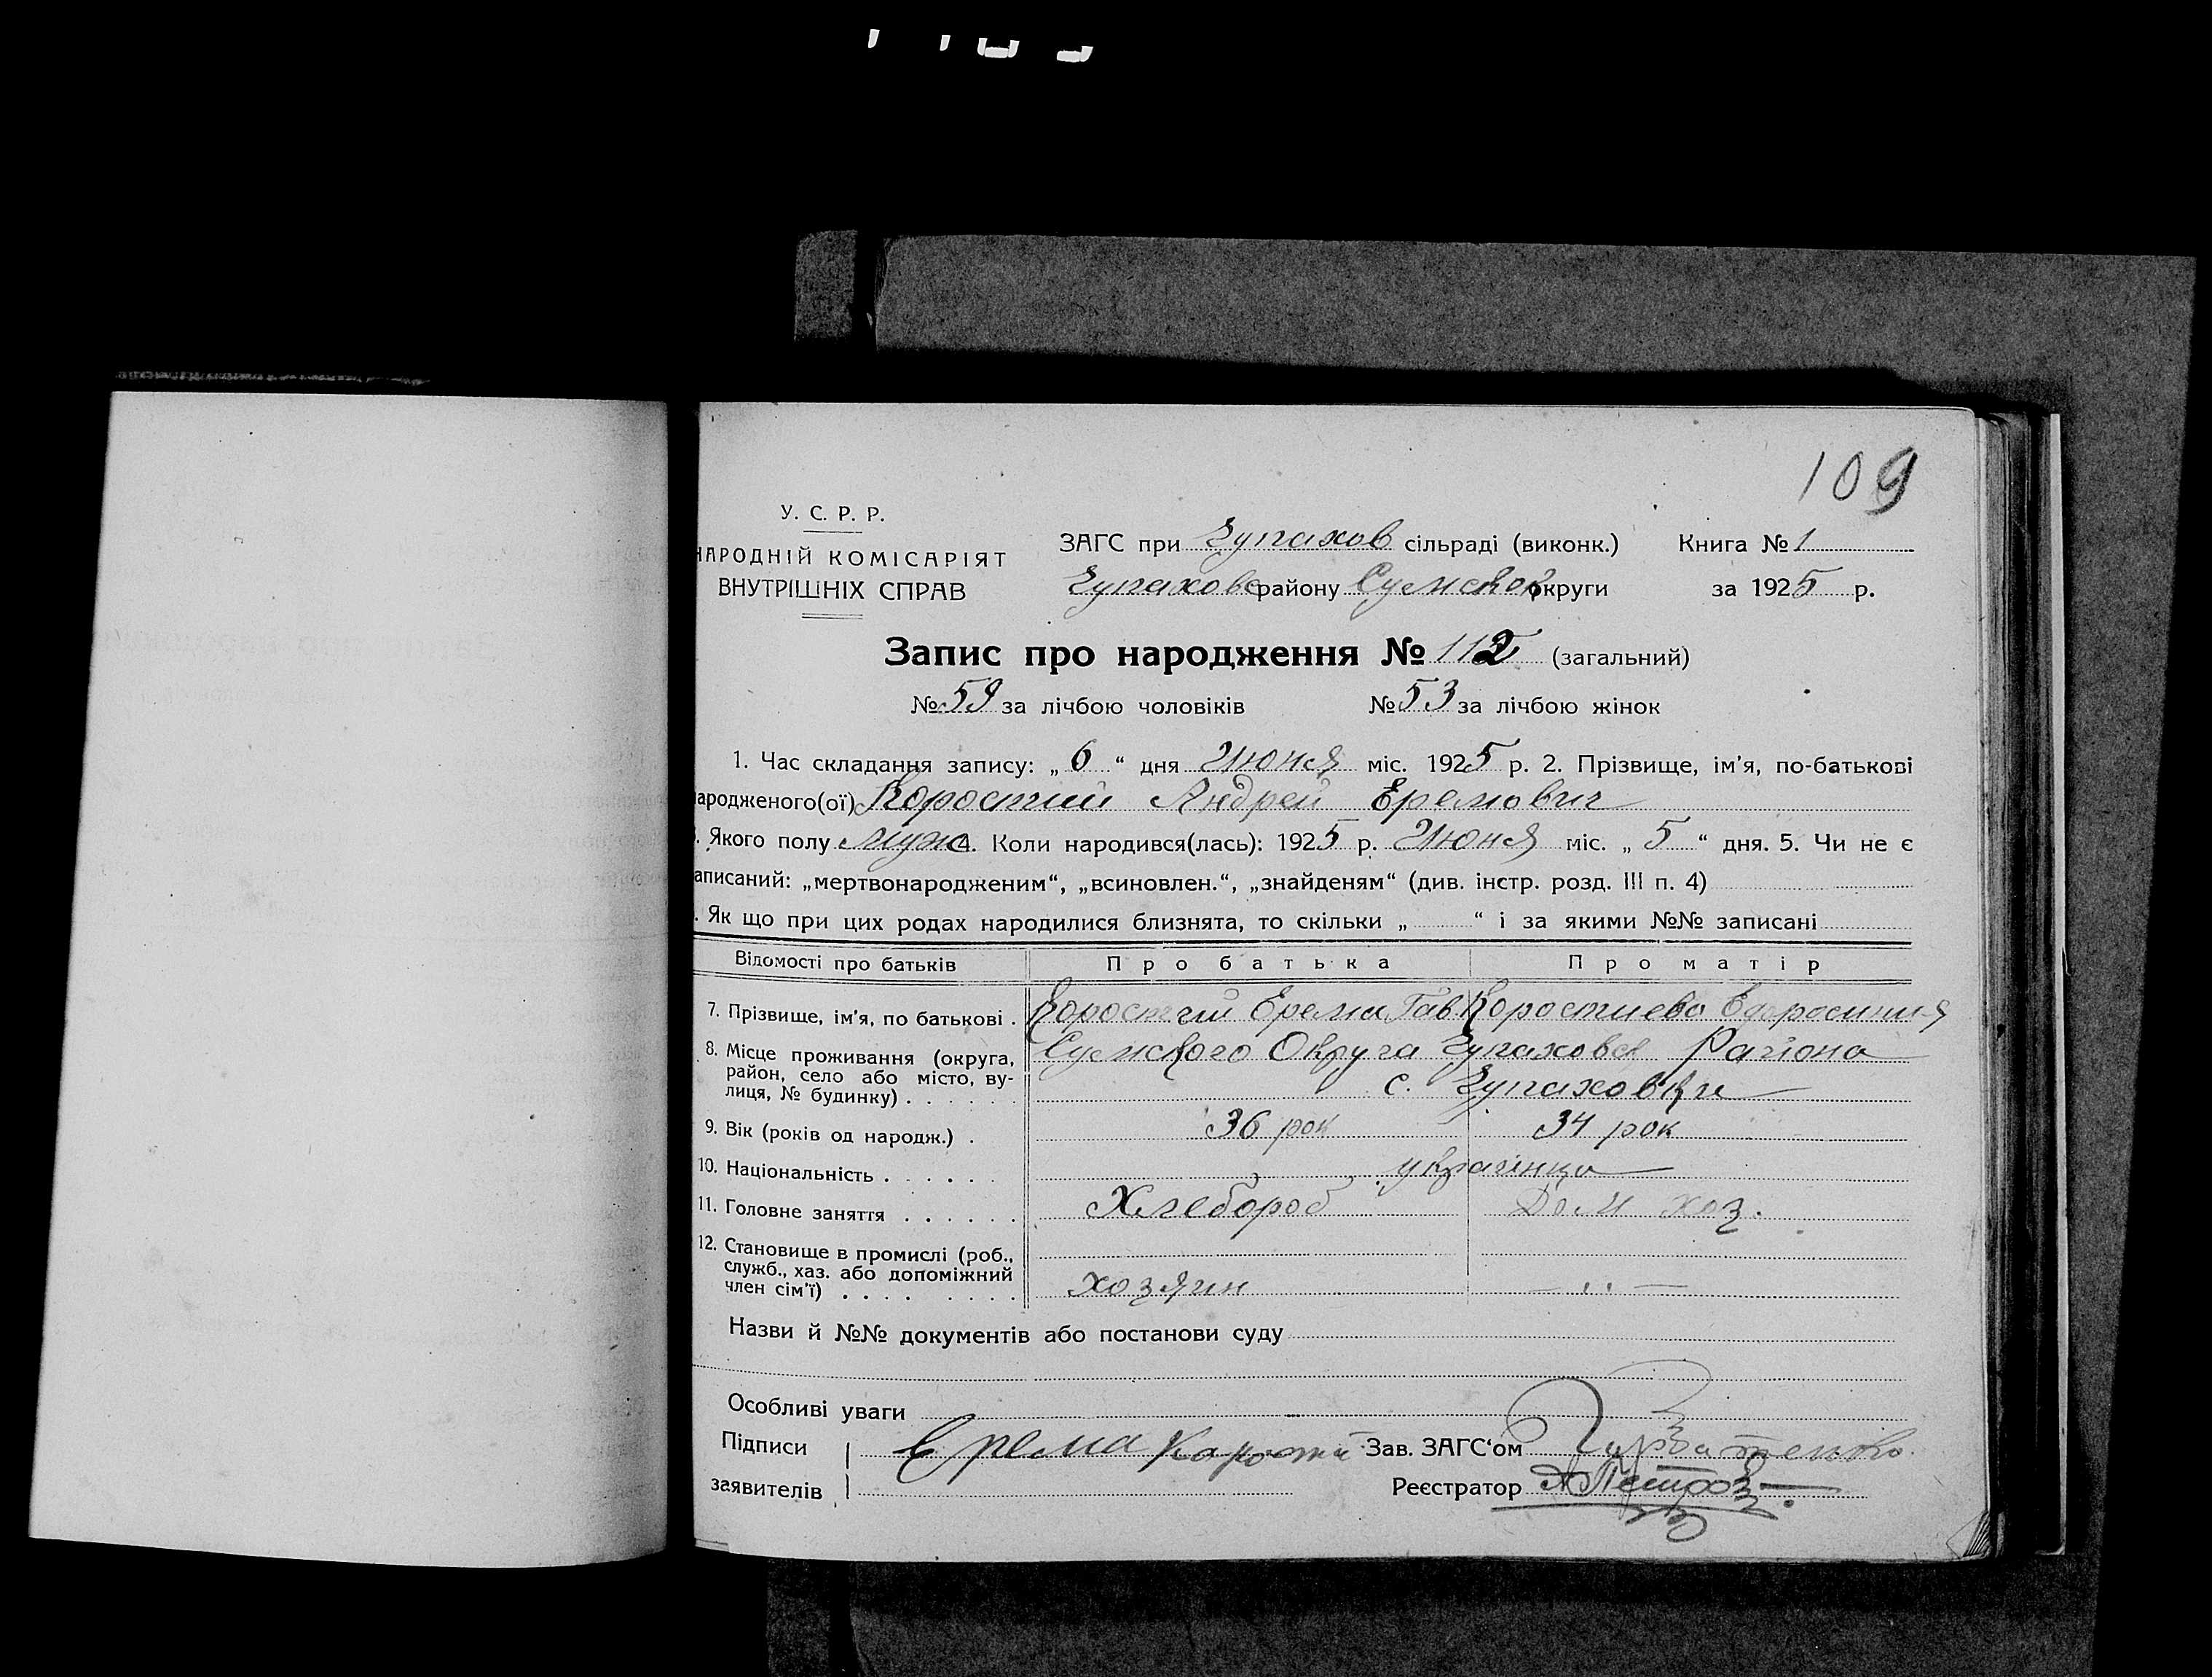 109
У. С. Р. Р.
НАРОДНІЙ КОМІСАРІЯТ
ВНУТРІШНІХ СПРАВ
ЗАГС при Чупахов сільраді (виконк.) Книга № 1
Чупаховс району Сумской округи за 1925 р.
Запис про народження № 112 (загальний)
№ 59 за лічбою чоловіків № 53 за лічбою жінок
1. Час складання запису: „6“ дня Июня міс. 1925 р. 2. Прізвище, ім'я, по-батькові
ародженого(ої) Коростий Андрей Еремович
. Якого полу муж 4. Коли народився(лась): 1925 р. Июня міс. „5“ дня. 5. Чи не є
аписаний: „мертвонародженим“, „всиновлен.“, „знайденям“ (див. інстр. розд. III п. 4)
. Як що при цих родах народилися близнята, то скільки „ “ і за якими №№ записані
Відомості про батьків Про батька Про матір
7. Прізвище, ім'я, по батькові . Коростий Ерема Гав Коростиева Ефросиния
8. Місце проживання (округа, район, село або місто, вулиця, № будинку) . . . . . . Сумского Округа Чупаховск Района
с. Чупаховки
9. Вік (років од народж.) . 36 рок 34 рок
10. Національність . . . . . . украинца
11. Головне заняття . . . . . . Хлебороб Дом хоз.
12. Становище в промислі (роб., служб., хаз. або допоміжний член сім'ї) . . . . . . . . хозяин — ,, —
Назви й №№ документів або постанови суду
Особливі уваги
Підписи Ерема Каростий Зав. ЗАГС‘ом
заявителів Реєстратор А Петров